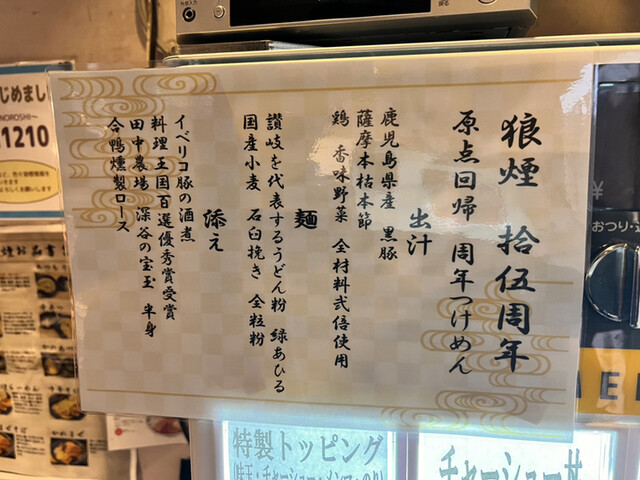 狼煙 拾伍周年
原点回帰 周年つけめん
出汁
鹿児島県産 黒豚
薩摩本枯本節
鶏 香味野菜 全材料弐倍使用
麺
讃岐を代表するうどん粉 緑あひる
国産小麦 石臼挽き 全粒粉
添え
イベリコ豚の酒煮
料理王国百選優秀賞受賞
田中農場 深谷の宝玉 半身
合鴨燻製ロース
じめまし
NOROSHI~
1210
煙お品書
おつり
¥
戻る
特製トッピング
味玉・チャーシュー・メンマ・のり
チャーシュー丼